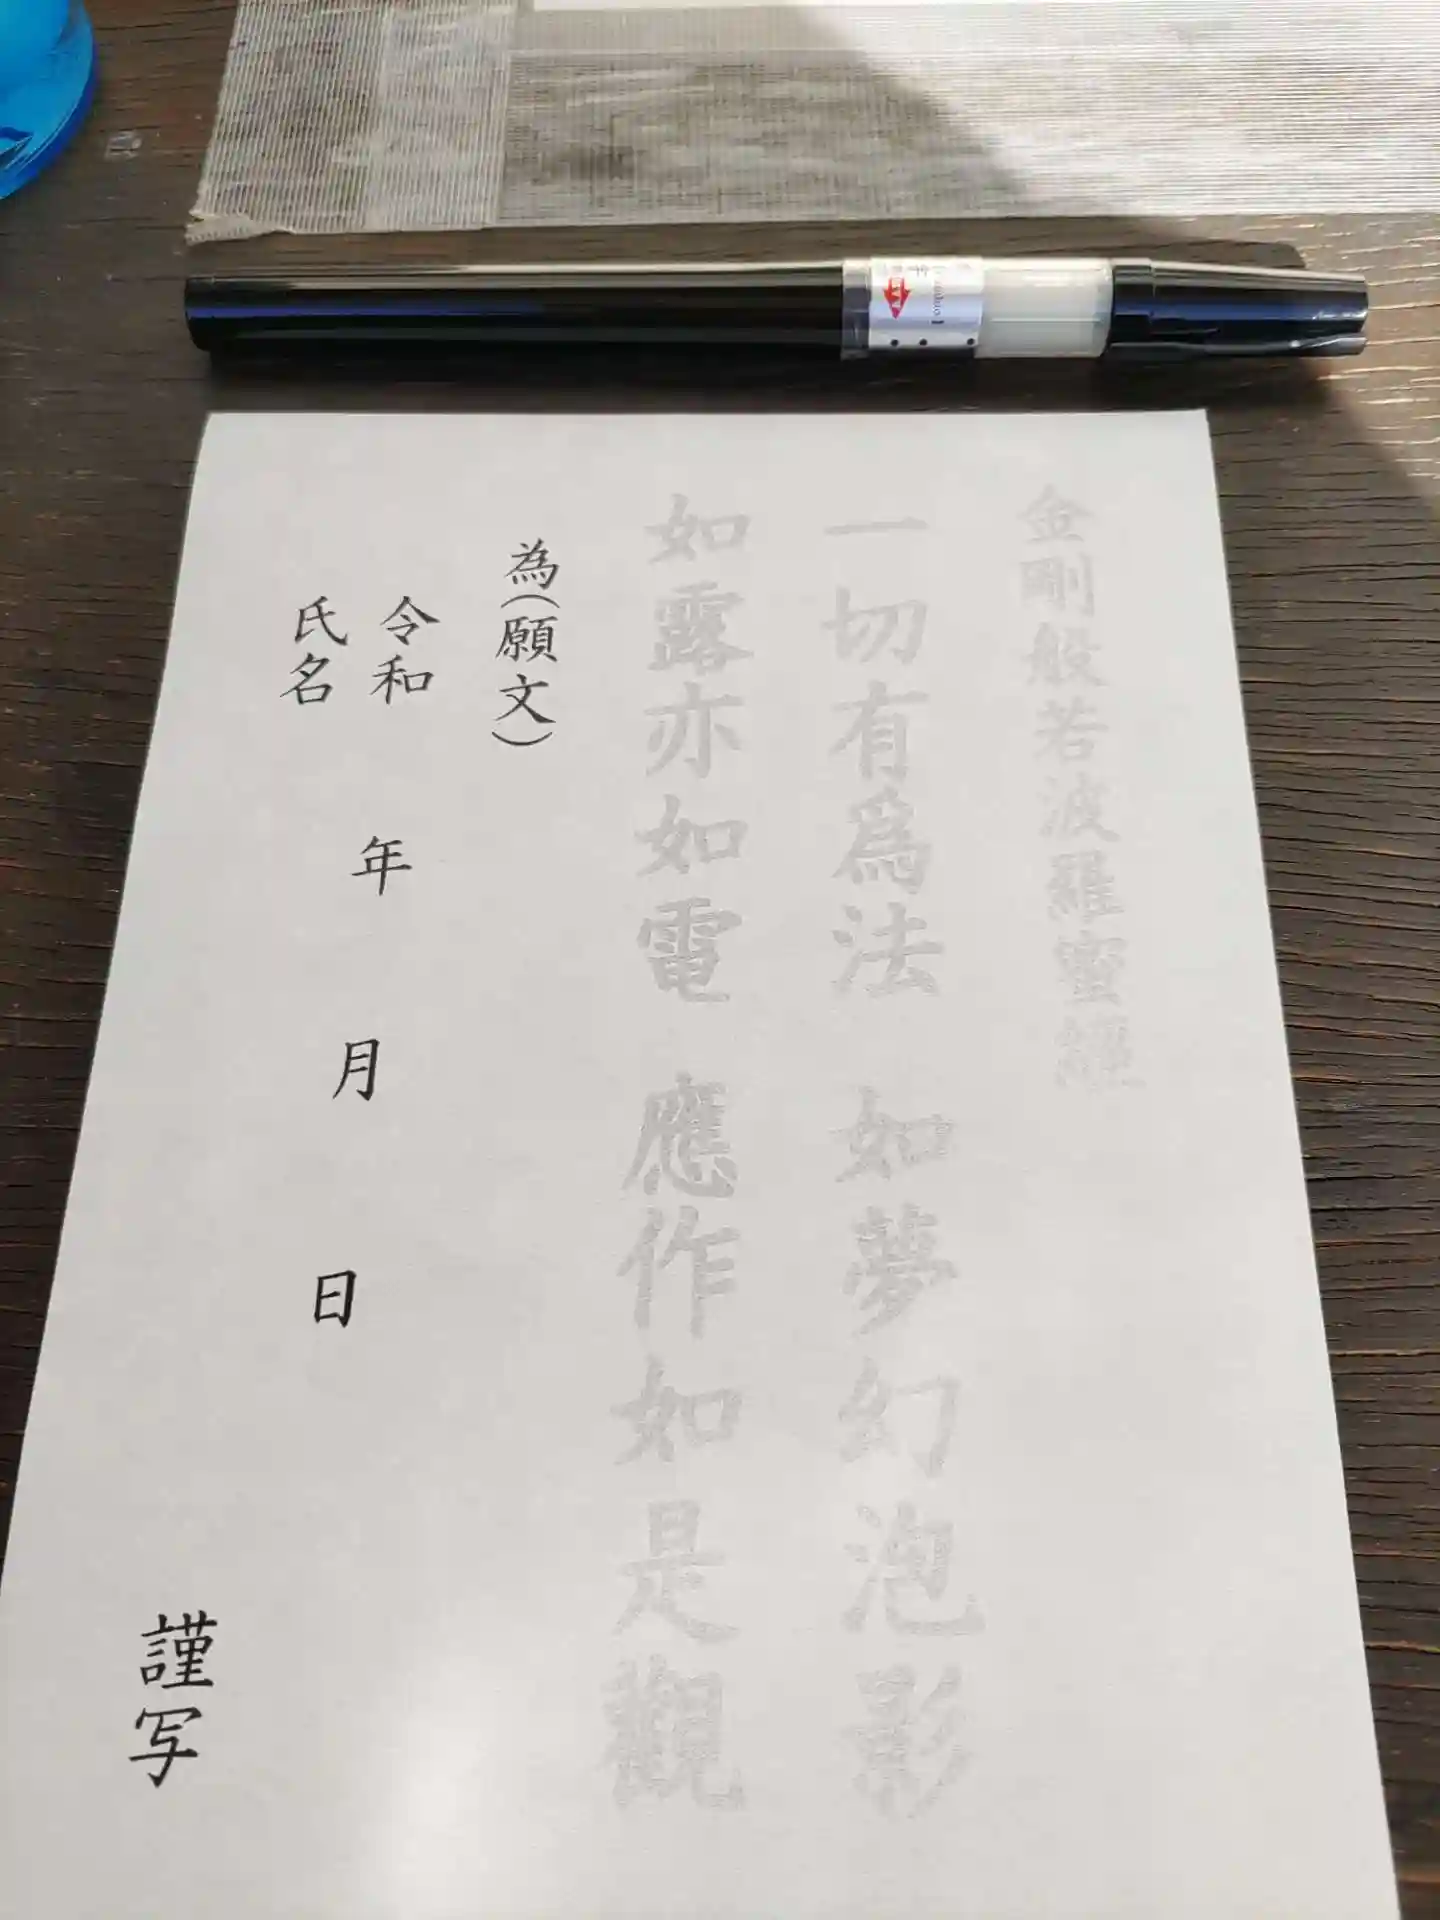 金剛般若波羅蜜經
一切有爲法 如夢幻泡影
如露亦如電 應作如是觀
為(願文)
令和 年 月 日
氏名 謹写